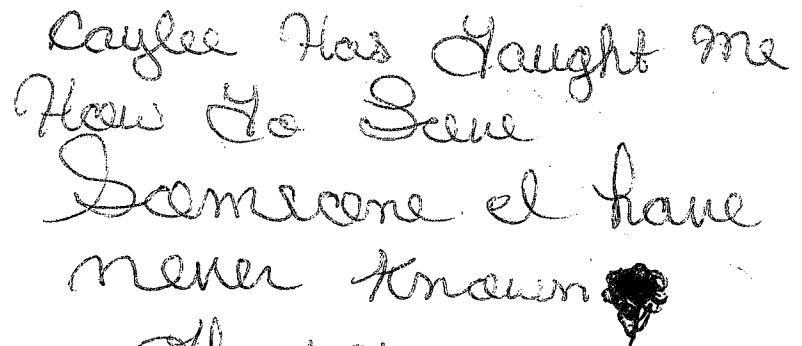 Caylee Has Taught me
How To Love
Someone I have
never Known